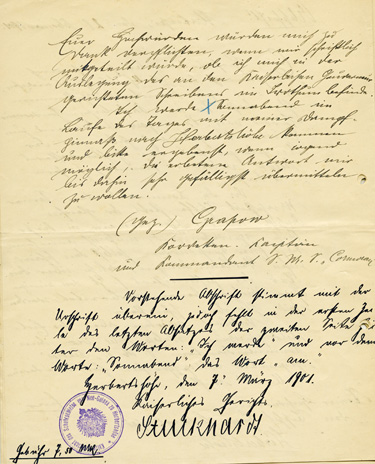 Euer Hochwürden würden mich zu
Dank verpflichten, wenn mir schriftlich
mitgeteilt würde, ob ich mich in der
Auslegung des an den Kaiserlichen Gouverneur
gerichteten Schreibens im Irrthum befinde.
Ich werde x Sonnabend im
Laufe des Tages mit meiner Dampf-
pinnass nach Herbertshöhe kommen
und bitte ergebenst, wenn irgend
möglich, die erbetene Antwort mir
bis dahin sehr gefälligst übermitteln
zu wollen.
(gez.) Grapow
Korvetten-Kapitän
und Kommandant S. M. S. Cormoran
Vorstehende Abschrift stimmt mit der
Urschrift überein, jedoch fehlt in der ersten Zei-
le des letzten Absatzes der zweiten Seite hin-
ter den Worten "Ich werde" und vor dem
Worte "Sonnabend" das Wort "am."
Herbertshöhe, den 7. März 1901.
Kaiserliches Gericht
Stuckhardt
Gebühr 7.50 Mk